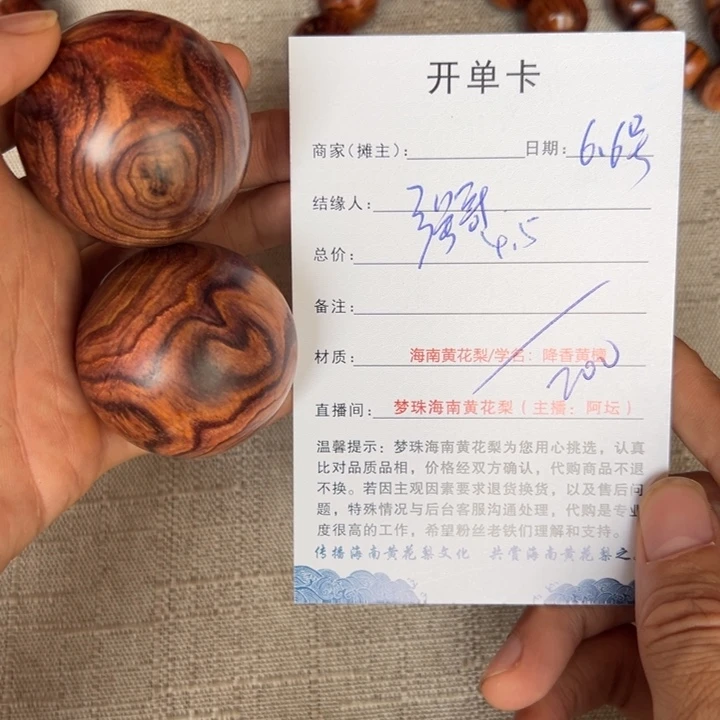 开单卡
商家(摊主): 日期: 6.6号
结缘人: 强哥
总价: 4.5
备注:
材质: 海南黄花梨/学名: 降香黄檀
200
直播间: 梦珠海南黄花梨(主播: 阿坛)
温馨提示: 梦珠海南黄花梨为您用心挑选, 认真
比对品质品相, 价格经双方确认, 代购商品不退
不换。若因主观因素要求退货换货, 以及售后问
题, 特殊情况与后台客服沟通处理, 代购是专业
度很高的工作, 希望粉丝老铁们理解和支持。
传播海南黄花梨文化 共赏海南黄花梨之